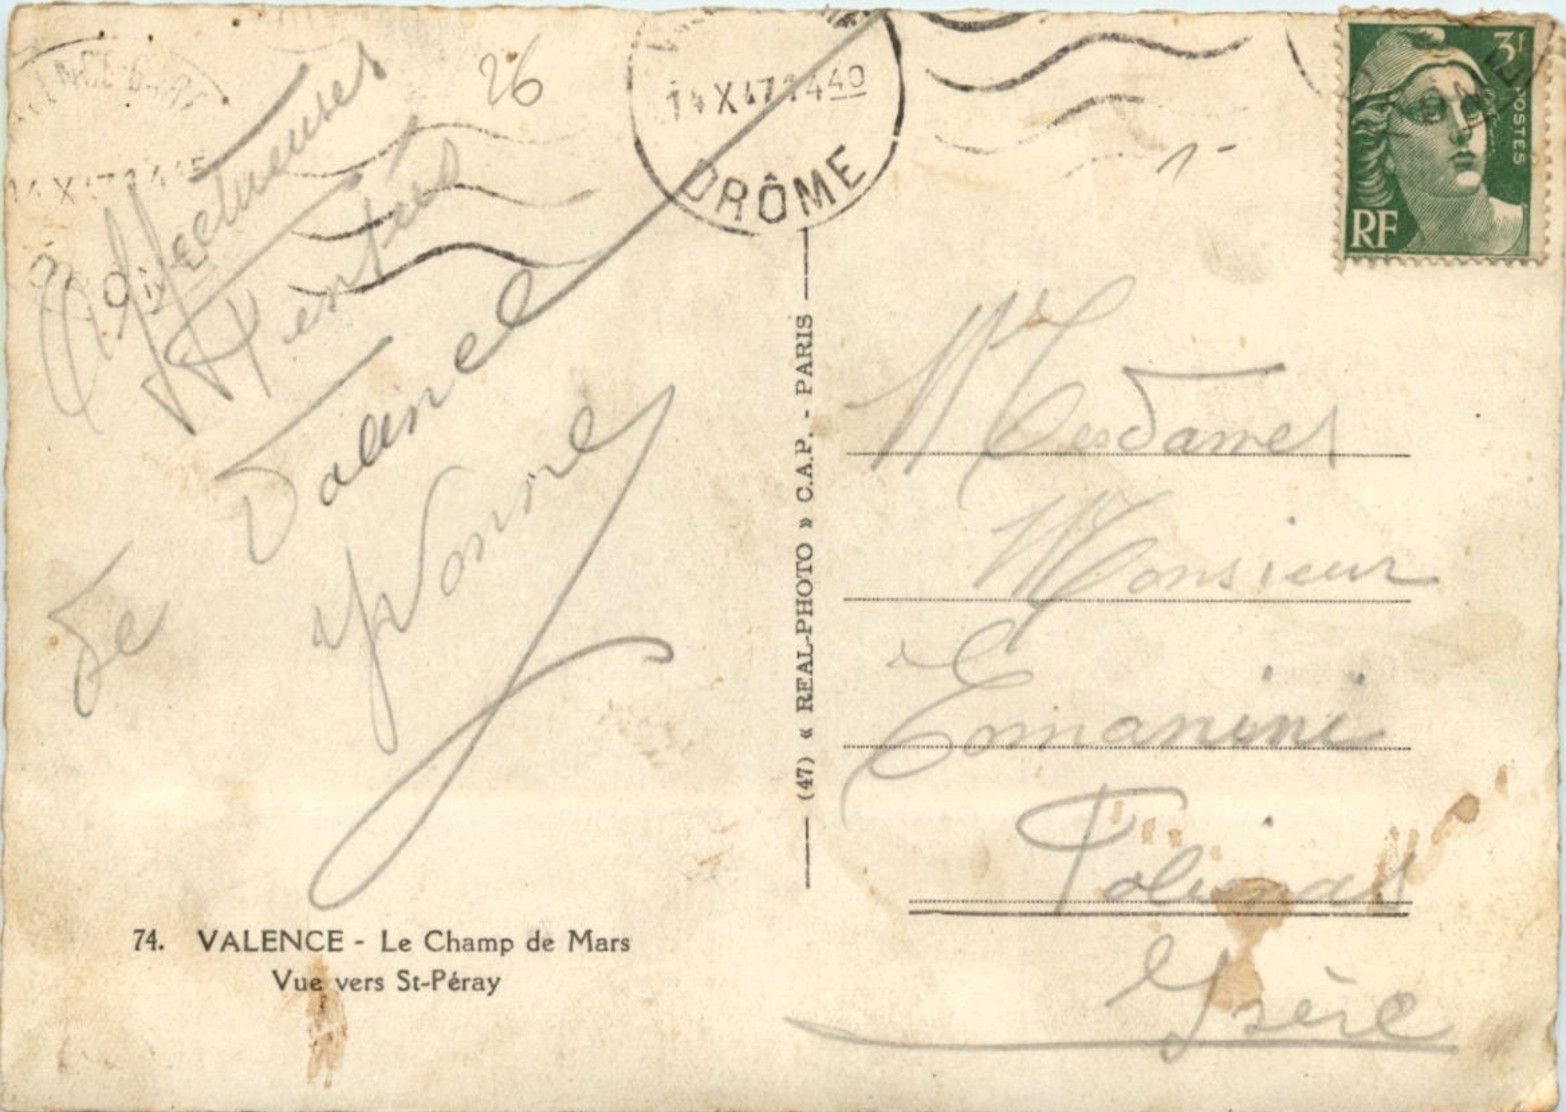 26
14 X 47 14 40
DRÔME
3F
POSTES
RF
1-
Affectueuses
Pensées
de Valence
Yvonne
74. VALENCE - Le Champ de Mars
Vue vers St-Péray
(47) « REAL-PHOTO » C.A.P. - PARIS
Mesdames
Monsieur
Eomanini
Polienas
Isère